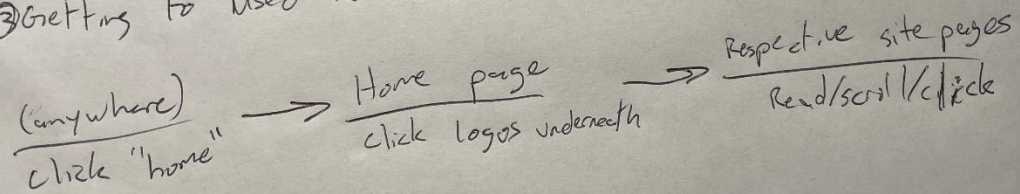 ③ Getting to used
(anywhere)
click "home"
Home page
click logos underneath
Respective site pages
Read/scroll/click